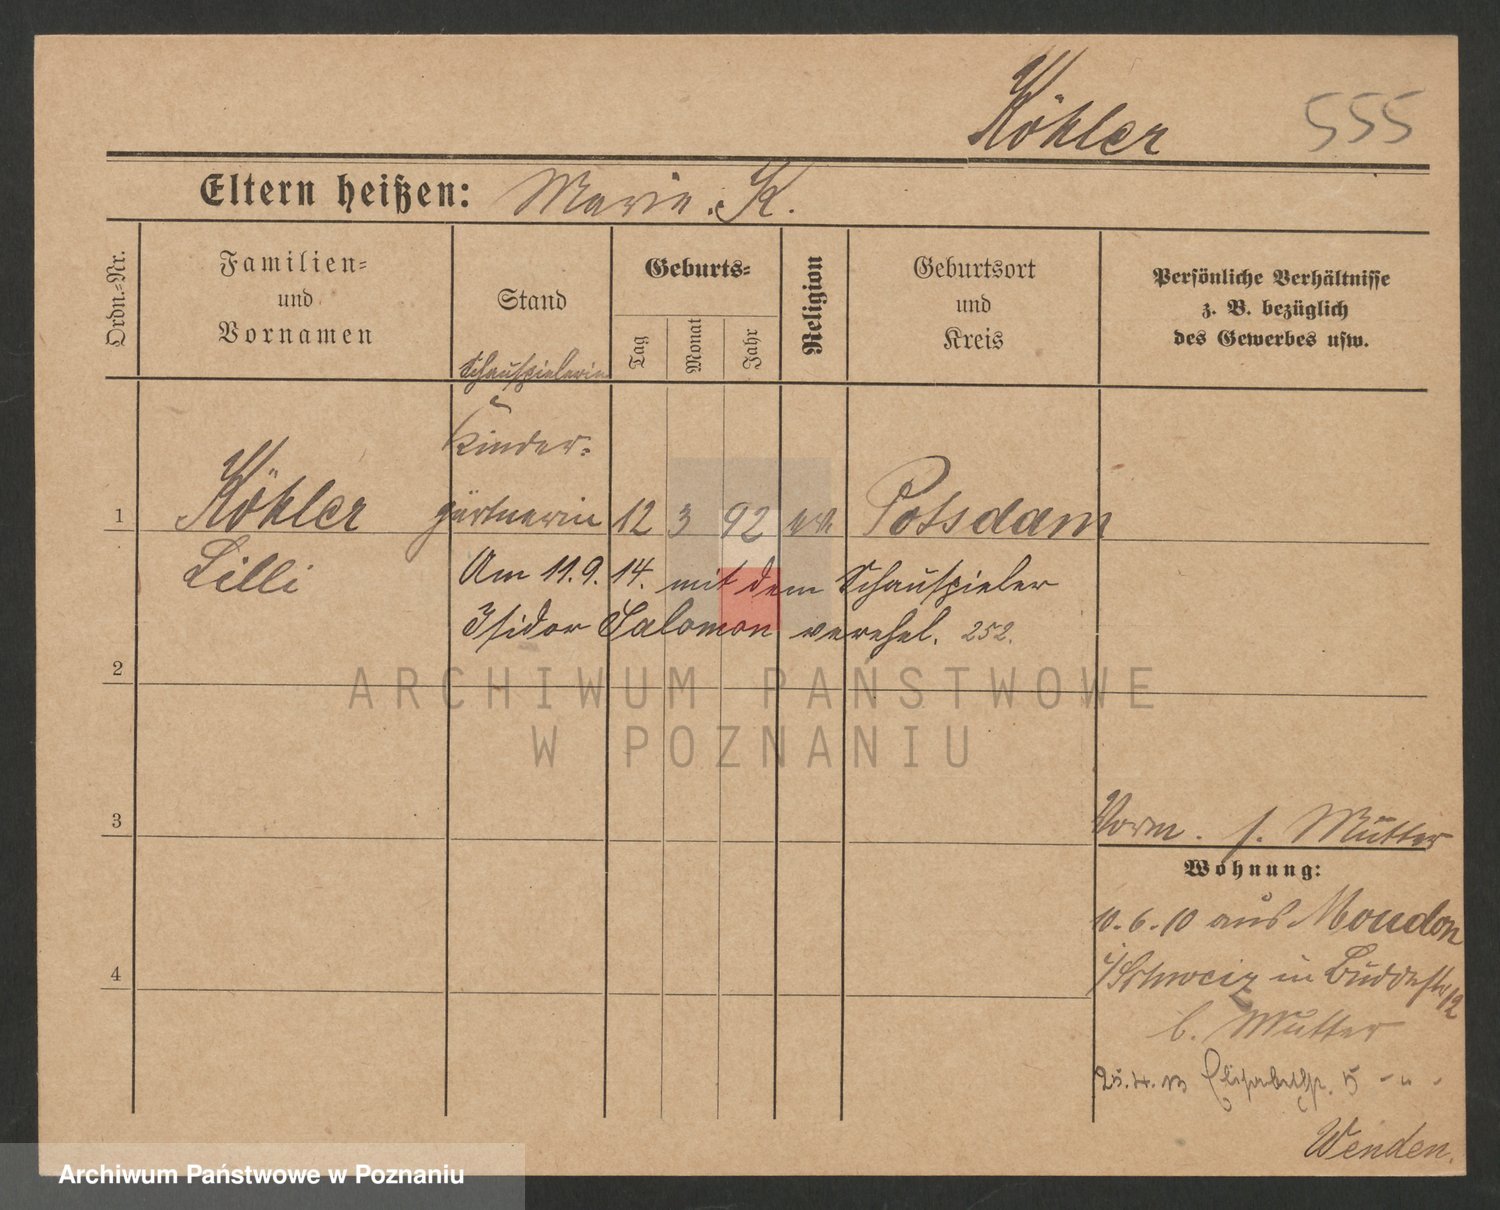 Köhler 555
Eltern heißen: Marie K.
Ordn.=Nr.
Familien=
und
Vornamen
Stand
Geburts=
Tag
Monat
Jahr
Religion
Geburtsort
und
Kreis
Persönliche Verhältnisse
z. B. bezüglich
des Gewerbes usw.
Schauspielerin
Kinder=
1 Köhler gärtnerin 12 3 92 Potsdam
Lilli Am 11.9.14. mit dem Schauspieler
Isidor Salomon verehel. 252.
2
ARCHIWUM PAŃSTWOWE
W POZNANIU
3
Vorm. s. Mutter
Wohnung:
10.6.10 aus Moudon
i/Schweiz in Buddestr 12
4
b. Mutter
25.4.13 Elisabethstr. 5 - " -
Wenden.
Archiwum Państwowe w Poznaniu